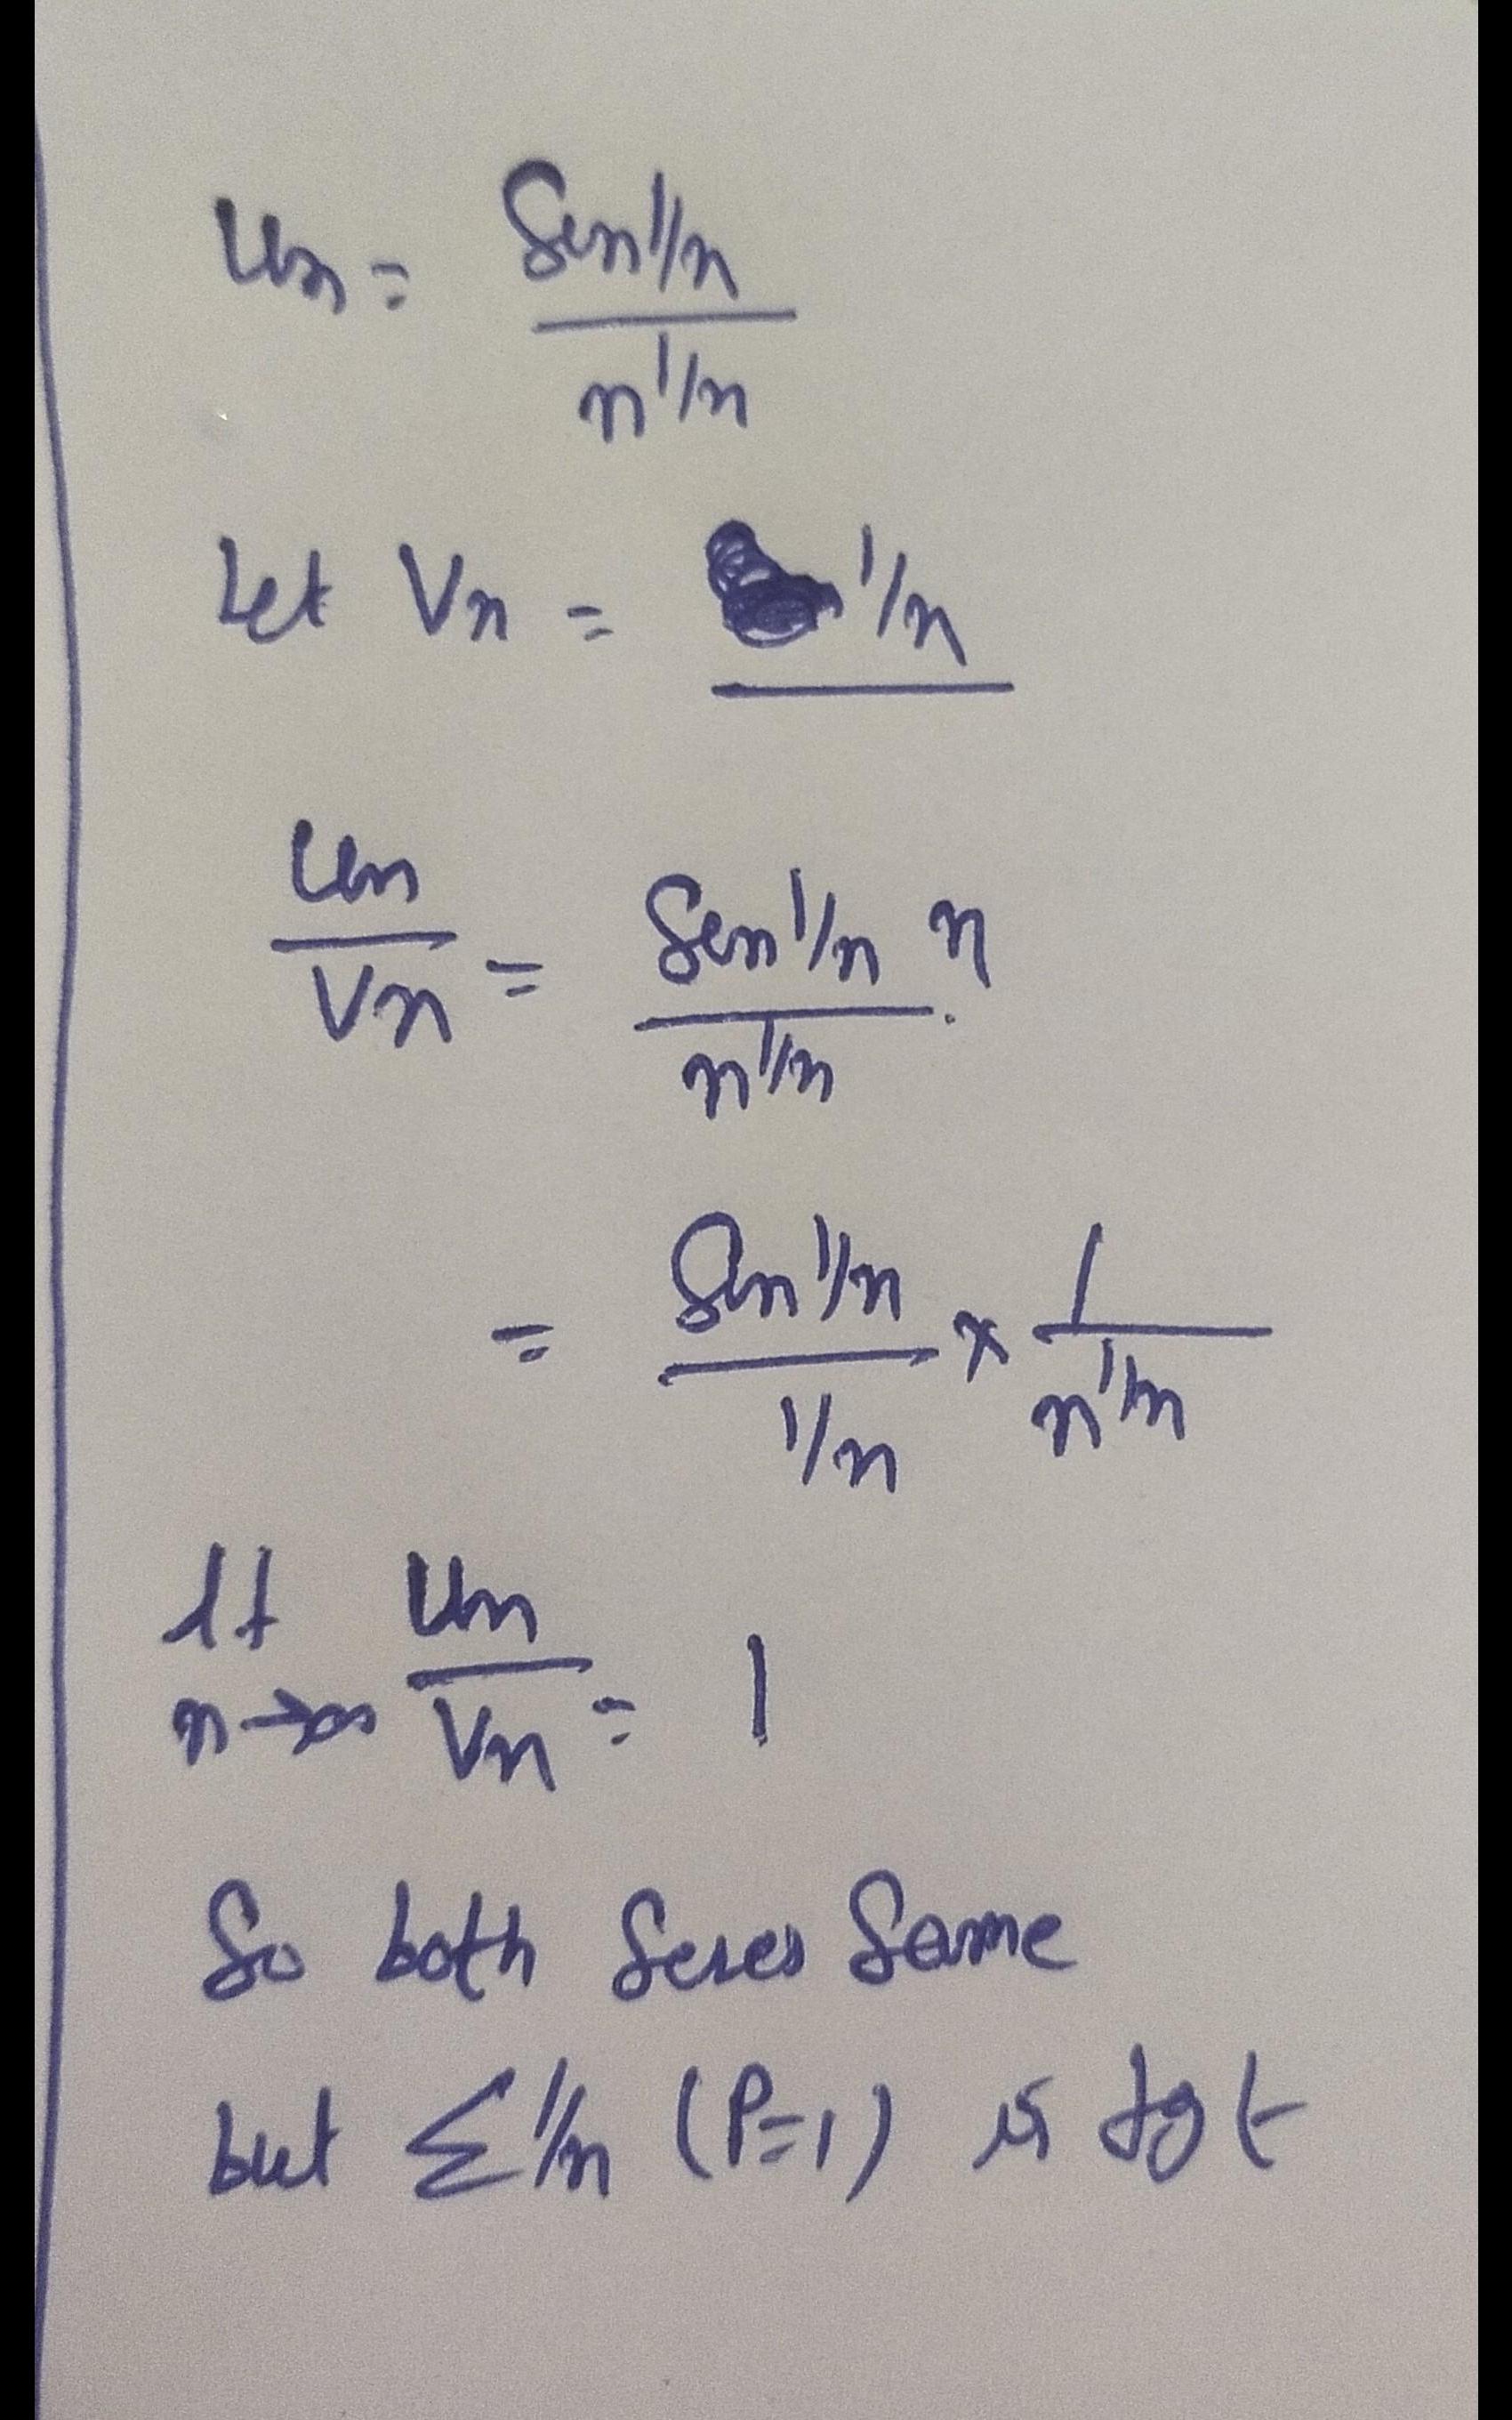 Un = Sin 1/n / n^1/n
Let Vn = 1/n
Un / Vn = Sin 1/n / n^1/n . n
= Sin 1/n / 1/n × 1 / n^1/n
lt n→∞ Un / Vn = 1
So both Series Same
but Σ 1/n (P=1) is dgt